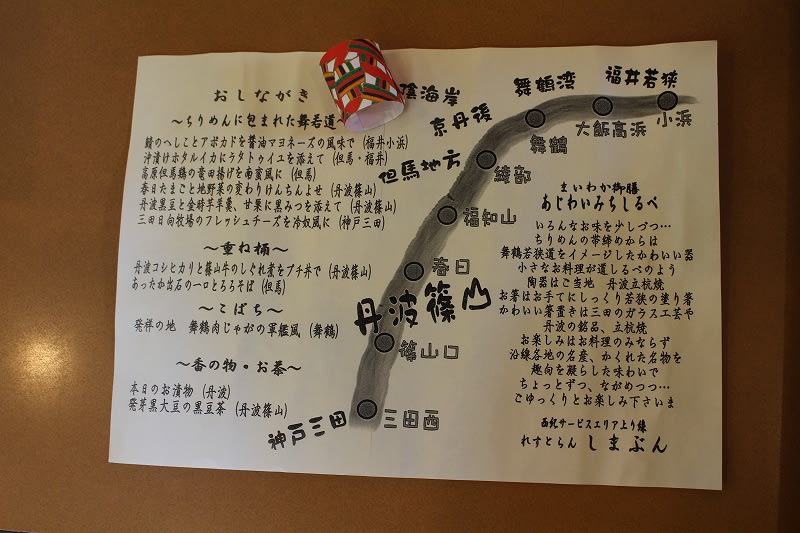 おしながき
～ちりめんに包まれた舞若道～
鯖のへしことアボカドを醤油マヨネーズの風味で (福井小浜)
沖漬けホタルイカにラタトゥイユを添えて (但馬・福井)
高原但馬鶏の竜田揚げを南蛮風に (但馬)
春日たまごと地野菜の変わりけんちんよせ (丹波篠山)
丹波黒豆と金時芋羊羹、甘栗に黒みつを添えて (丹波篠山)
三田日向牧場のフレッシュチーズを冷奴風に (神戸三田)
～重ね桶～
丹波コシヒカリと篠山牛のしぐれ煮をプチ丼で (丹波篠山)
あったか出石の一口とろろそば (但馬)
～こばち～
発祥の地 舞鶴肉じゃがの軍艦風 (舞鶴)
～香の物・お茶～
本日のお漬物 (丹波)
発芽黒大豆の黒豆茶 (丹波篠山)
福井若狭
舞鶴湾
陰海岸
京丹後
但馬地方
丹波篠山
神戸三田
小浜
大飯高浜
舞鶴
綾部
福知山
春日
篠山口
三田西
まいわか御膳
あじわいみちしるべ
いろんなお味を少しづつ…
ちりめんの帯締めからは
舞鶴若狭道をイメージしたかわいい器
小さなお料理が道しるべのよう
陶器はご当地 丹波立杭焼
お箸はお手てにしっくり若狭の塗り箸
かわいい箸置きは三田のガラス工芸や
丹波の銘品、立杭焼
お楽しみはお料理のみならず
沿線各地の名産、かくれた名物を
趣向を凝らした味わいで
ちょっとずつ、ながめつつ…
ごゆっくりとお楽しみ下さいま
西紀サービスエリア上り線
れすとらん しまぶん